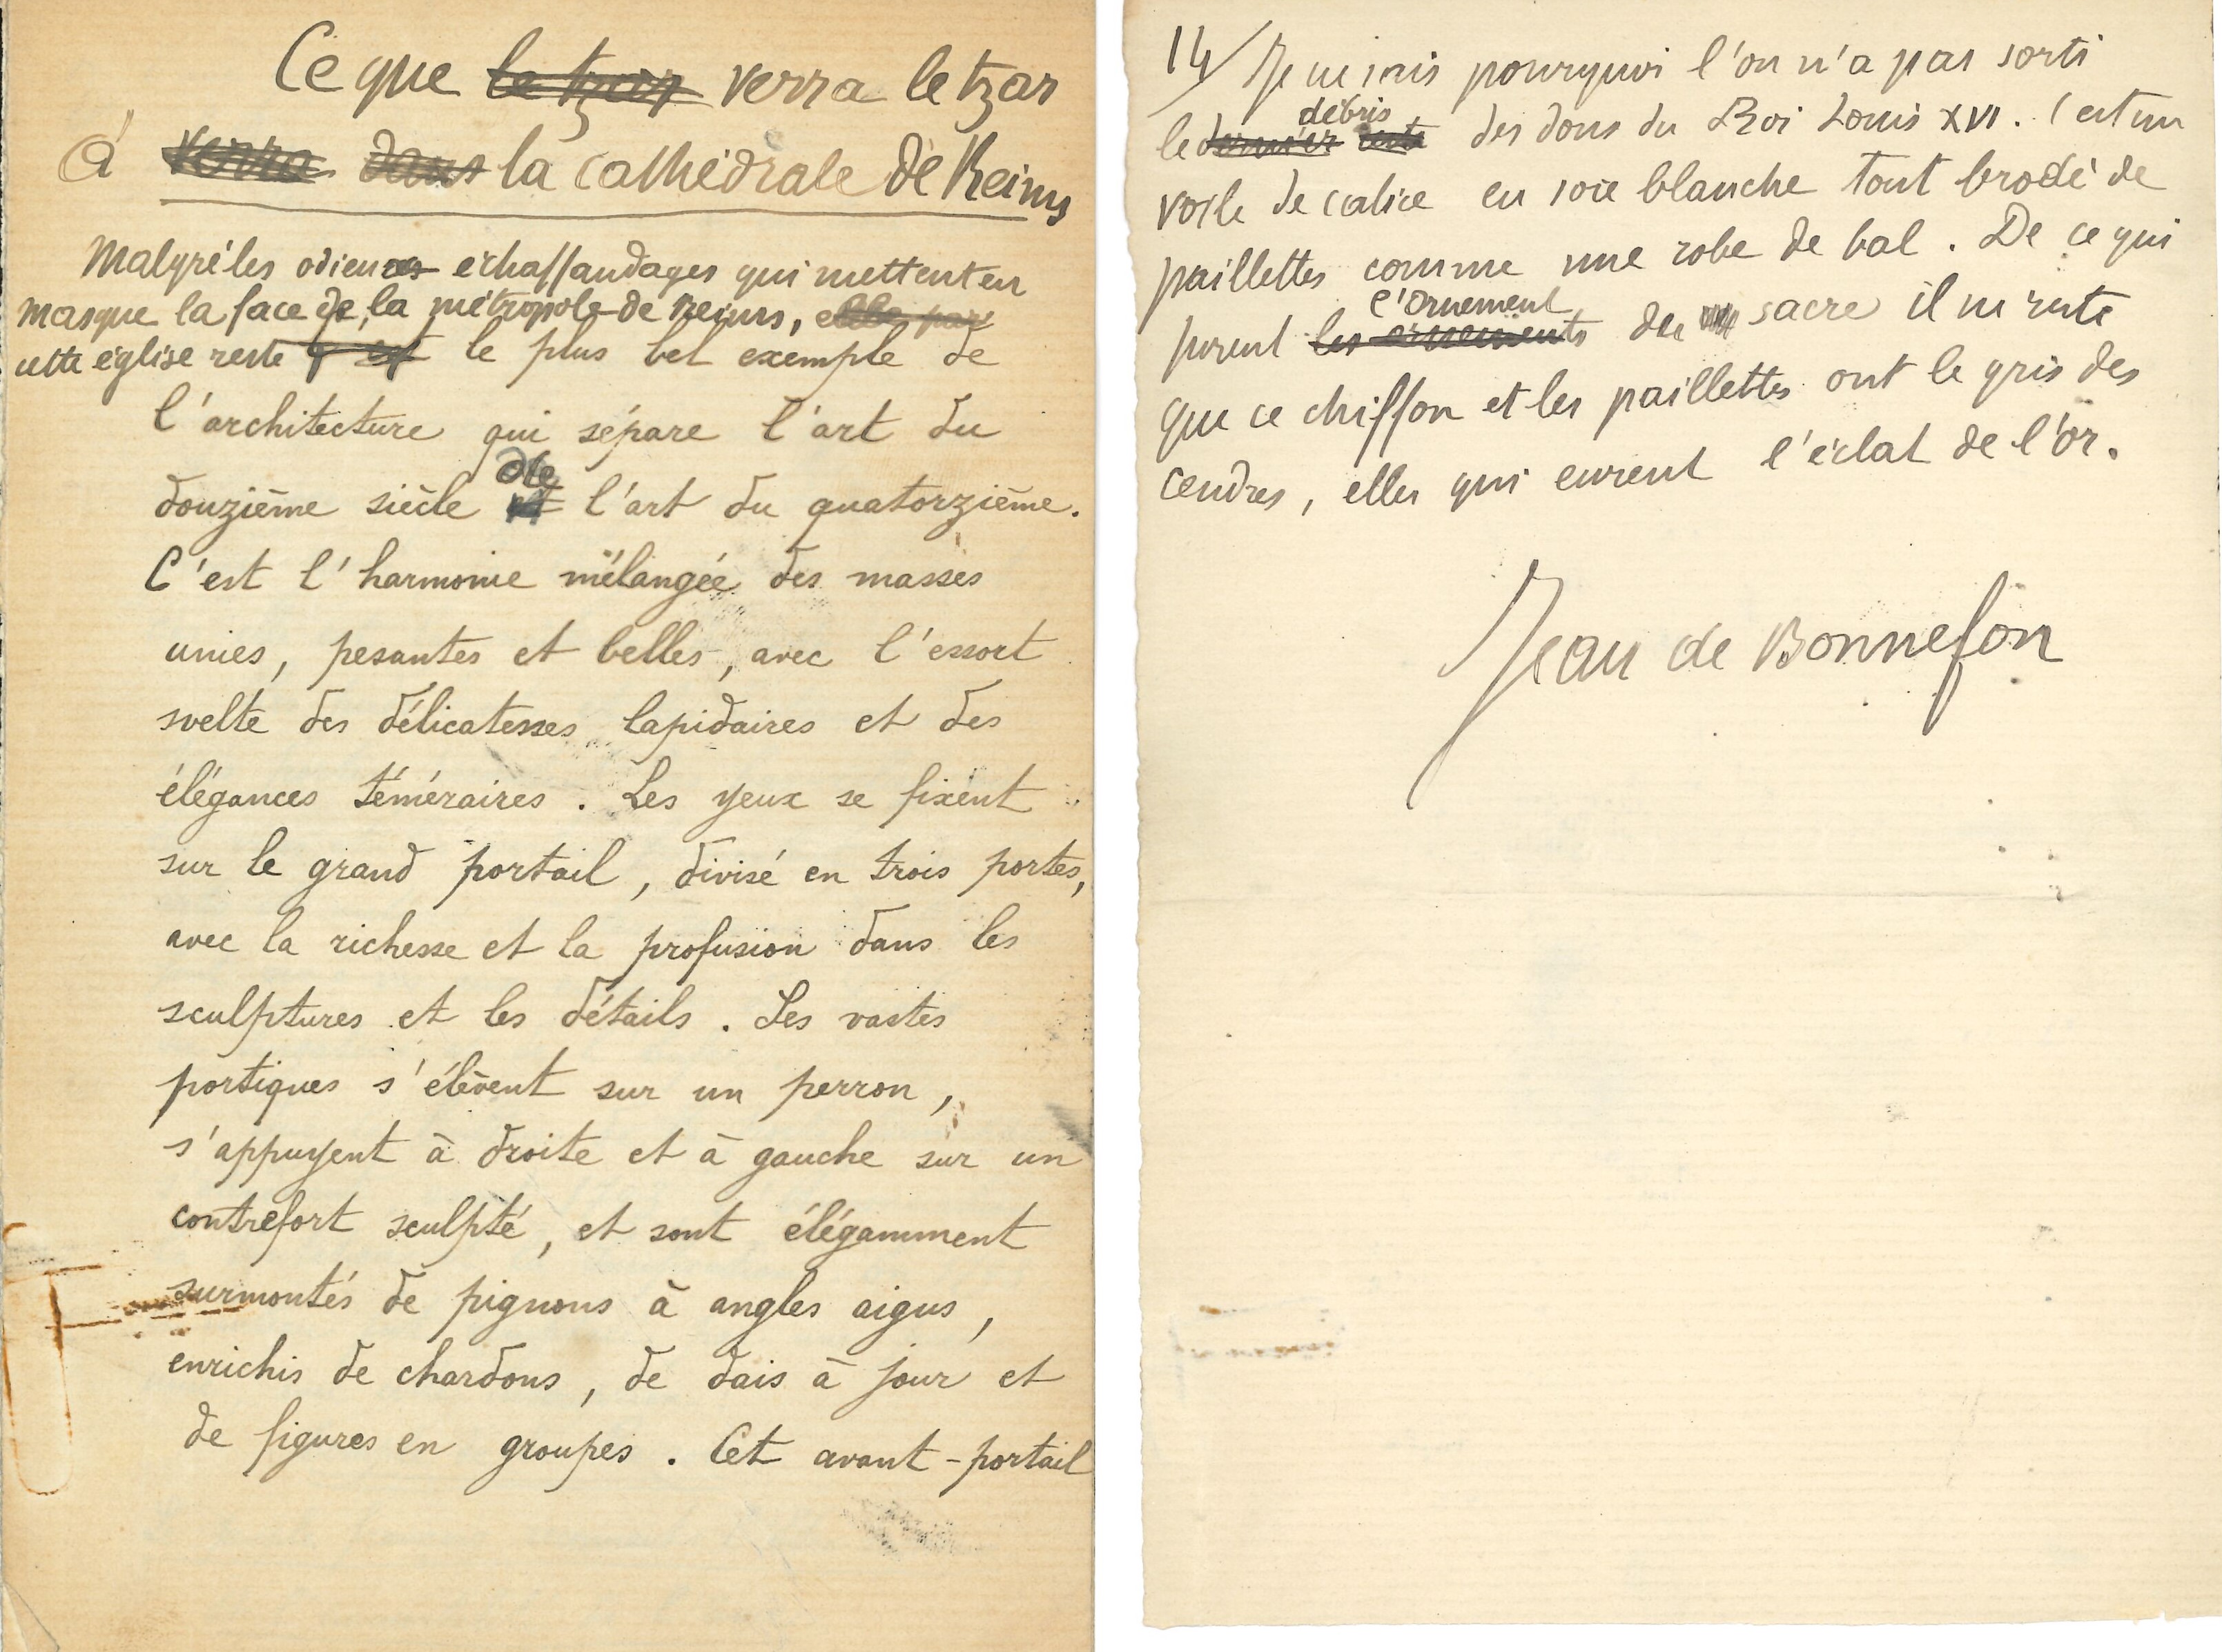 Ce que le tzar verra le tzar
à verra dans la cathédrale de Reims
Malgré les odieux échaffaudages qui mettent en
masque la face de la métropole de Reims, elle par
cette église reste est le plus bel exemple de
l'architecture qui sépare l'art du
de
douzième siècle et l'art du quatorzième.
C'est l'harmonie mélangée des masses
unies, pesantes et belles, avec l'essort
svelte des délicatesses lapidaires et des
élégances téméraires. Les yeux se fixent
sur le grand portail, divisé en trois portes,
avec la richesse et la profusion dans les
sculptures et les détails. Les vastes
portiques s'élèvent sur un perron,
s'appuyent à droite et à gauche sur un
contrefort sculpté, et sont élégamment
surmontés de pignons à angles aigus,
enrichis de chardons, de dais à jour et
de figures en groupes. Cet avant-portail
14/ Je ne sais pourquoi l'on n'a pas sorti
débris
le dernier reste des dons du Roi Louis XVI. C'est un
voile de calice en soie blanche tout brodé de
paillettes comme une robe de bal. De ce qui
l'ornement
furent les ornements du sacre il ne reste
que ce chiffon et les paillettes ont le gris des
cendres, elles qui eurent l'éclat de l'or.
Jean de Bonnefon